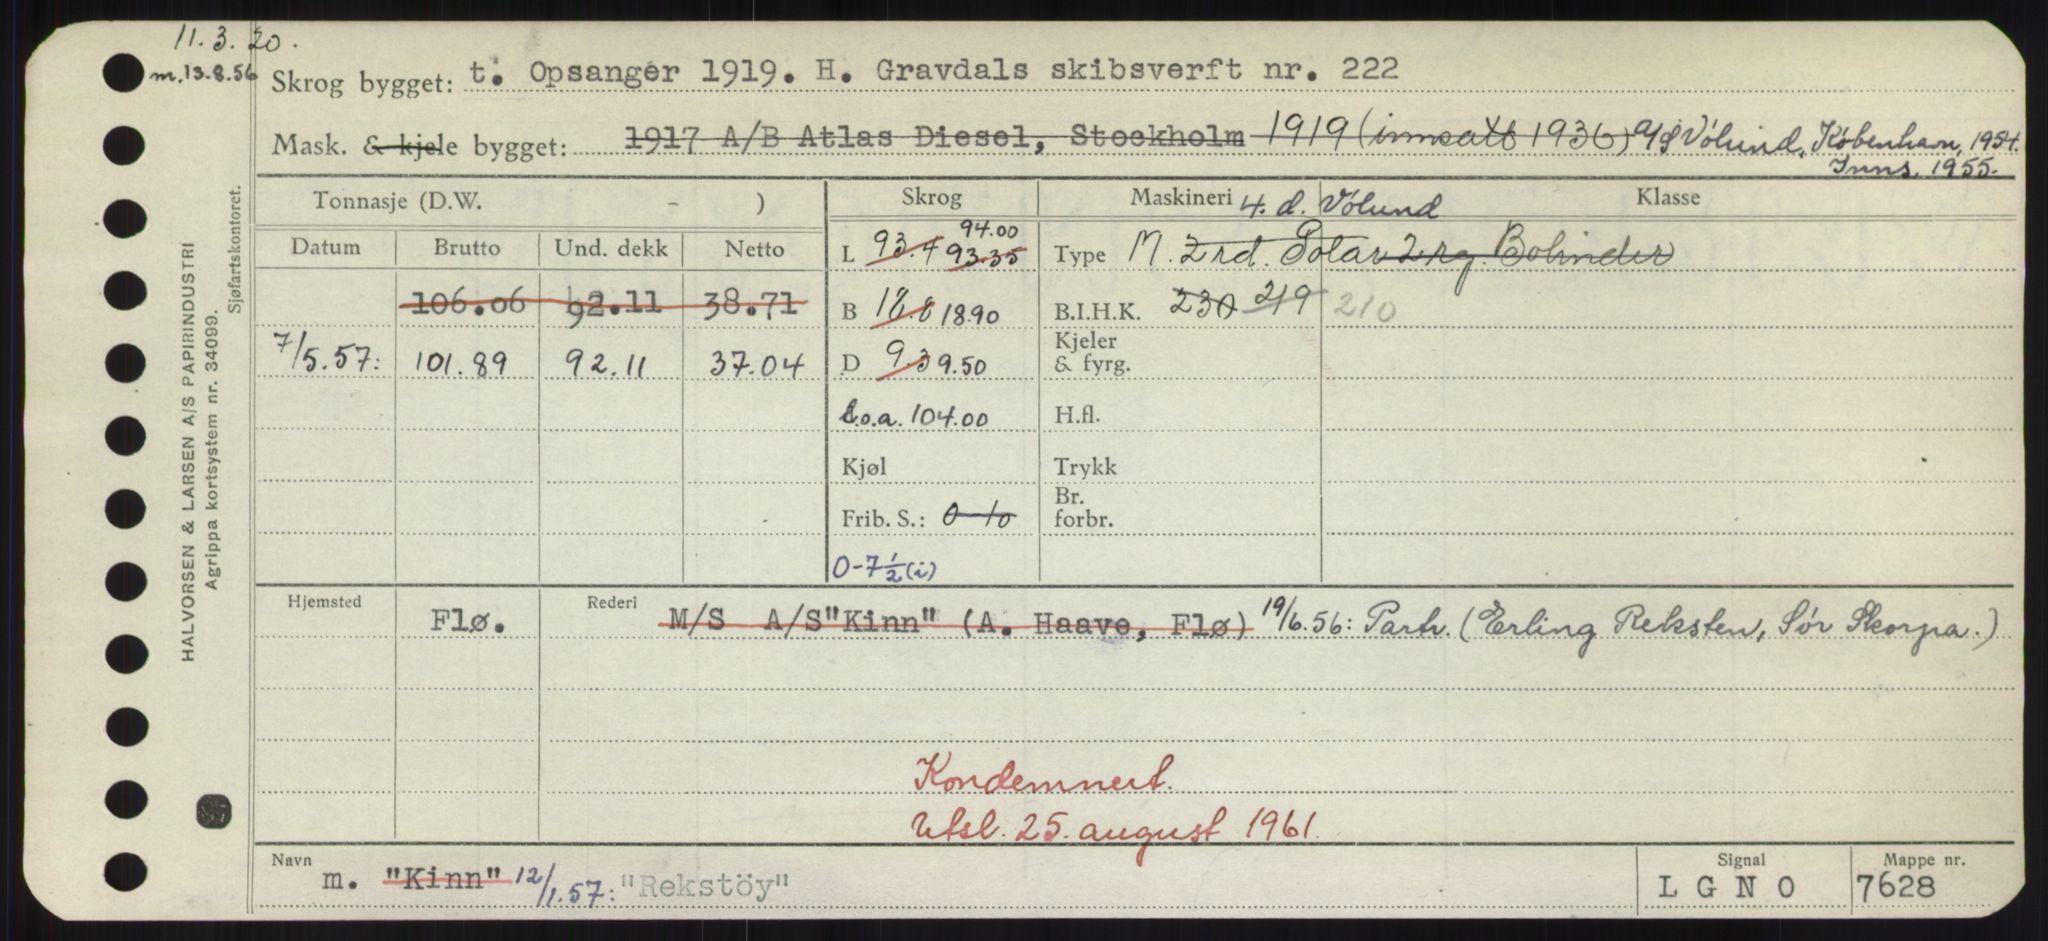 11.3.20.
m.13.8.56
Skrog bygget: t. Opsanger 1919. H. Gravdals skibsverft nr. 222
Mask. & kjele bygget: 1917 A/B Atlas Diesel, Stockholm 1919 (innsatt 1936) A/S Vølund, København, 1954.
Inns. 1955.
Tonnasje (D.W. - ) Skrog Maskineri 4. d. Vølund Klasse
Datum Brutto Und. dekk Netto L 93.4 93.35 94.00 Type M. 2 rd. Polar 2 rg. Bolinder
106.06 92.11 38.71 B 18.8 18.90 B.I.H.K. 230 219 210
7/5.57: 101.89 92.11 37.04 D 9.3 9.50 Kjeler & fyrg.
L.o.a. 104.00 H.fl.
Kjøl Trykk
Frib. S.: 0-10 Br. forbr.
0-7½(i)
Hjemsted Flø. Rederi M/S A/S"Kinn" (A. Haave, Flø) 19/6.56: Partr. (Erling Reksten, Sør Skorpa.)
Kondemnert.
Utsl. 25. august 1961.
Navn m. "Kinn" 12/1.57: "Rekstöy" Signal L G N O Mappe nr. 7628
HALVORSEN & LARSEN A/S PAPIRINDUSTRI
Agrippa kortsystem nr. 34099.
Sjøfartskontoret.